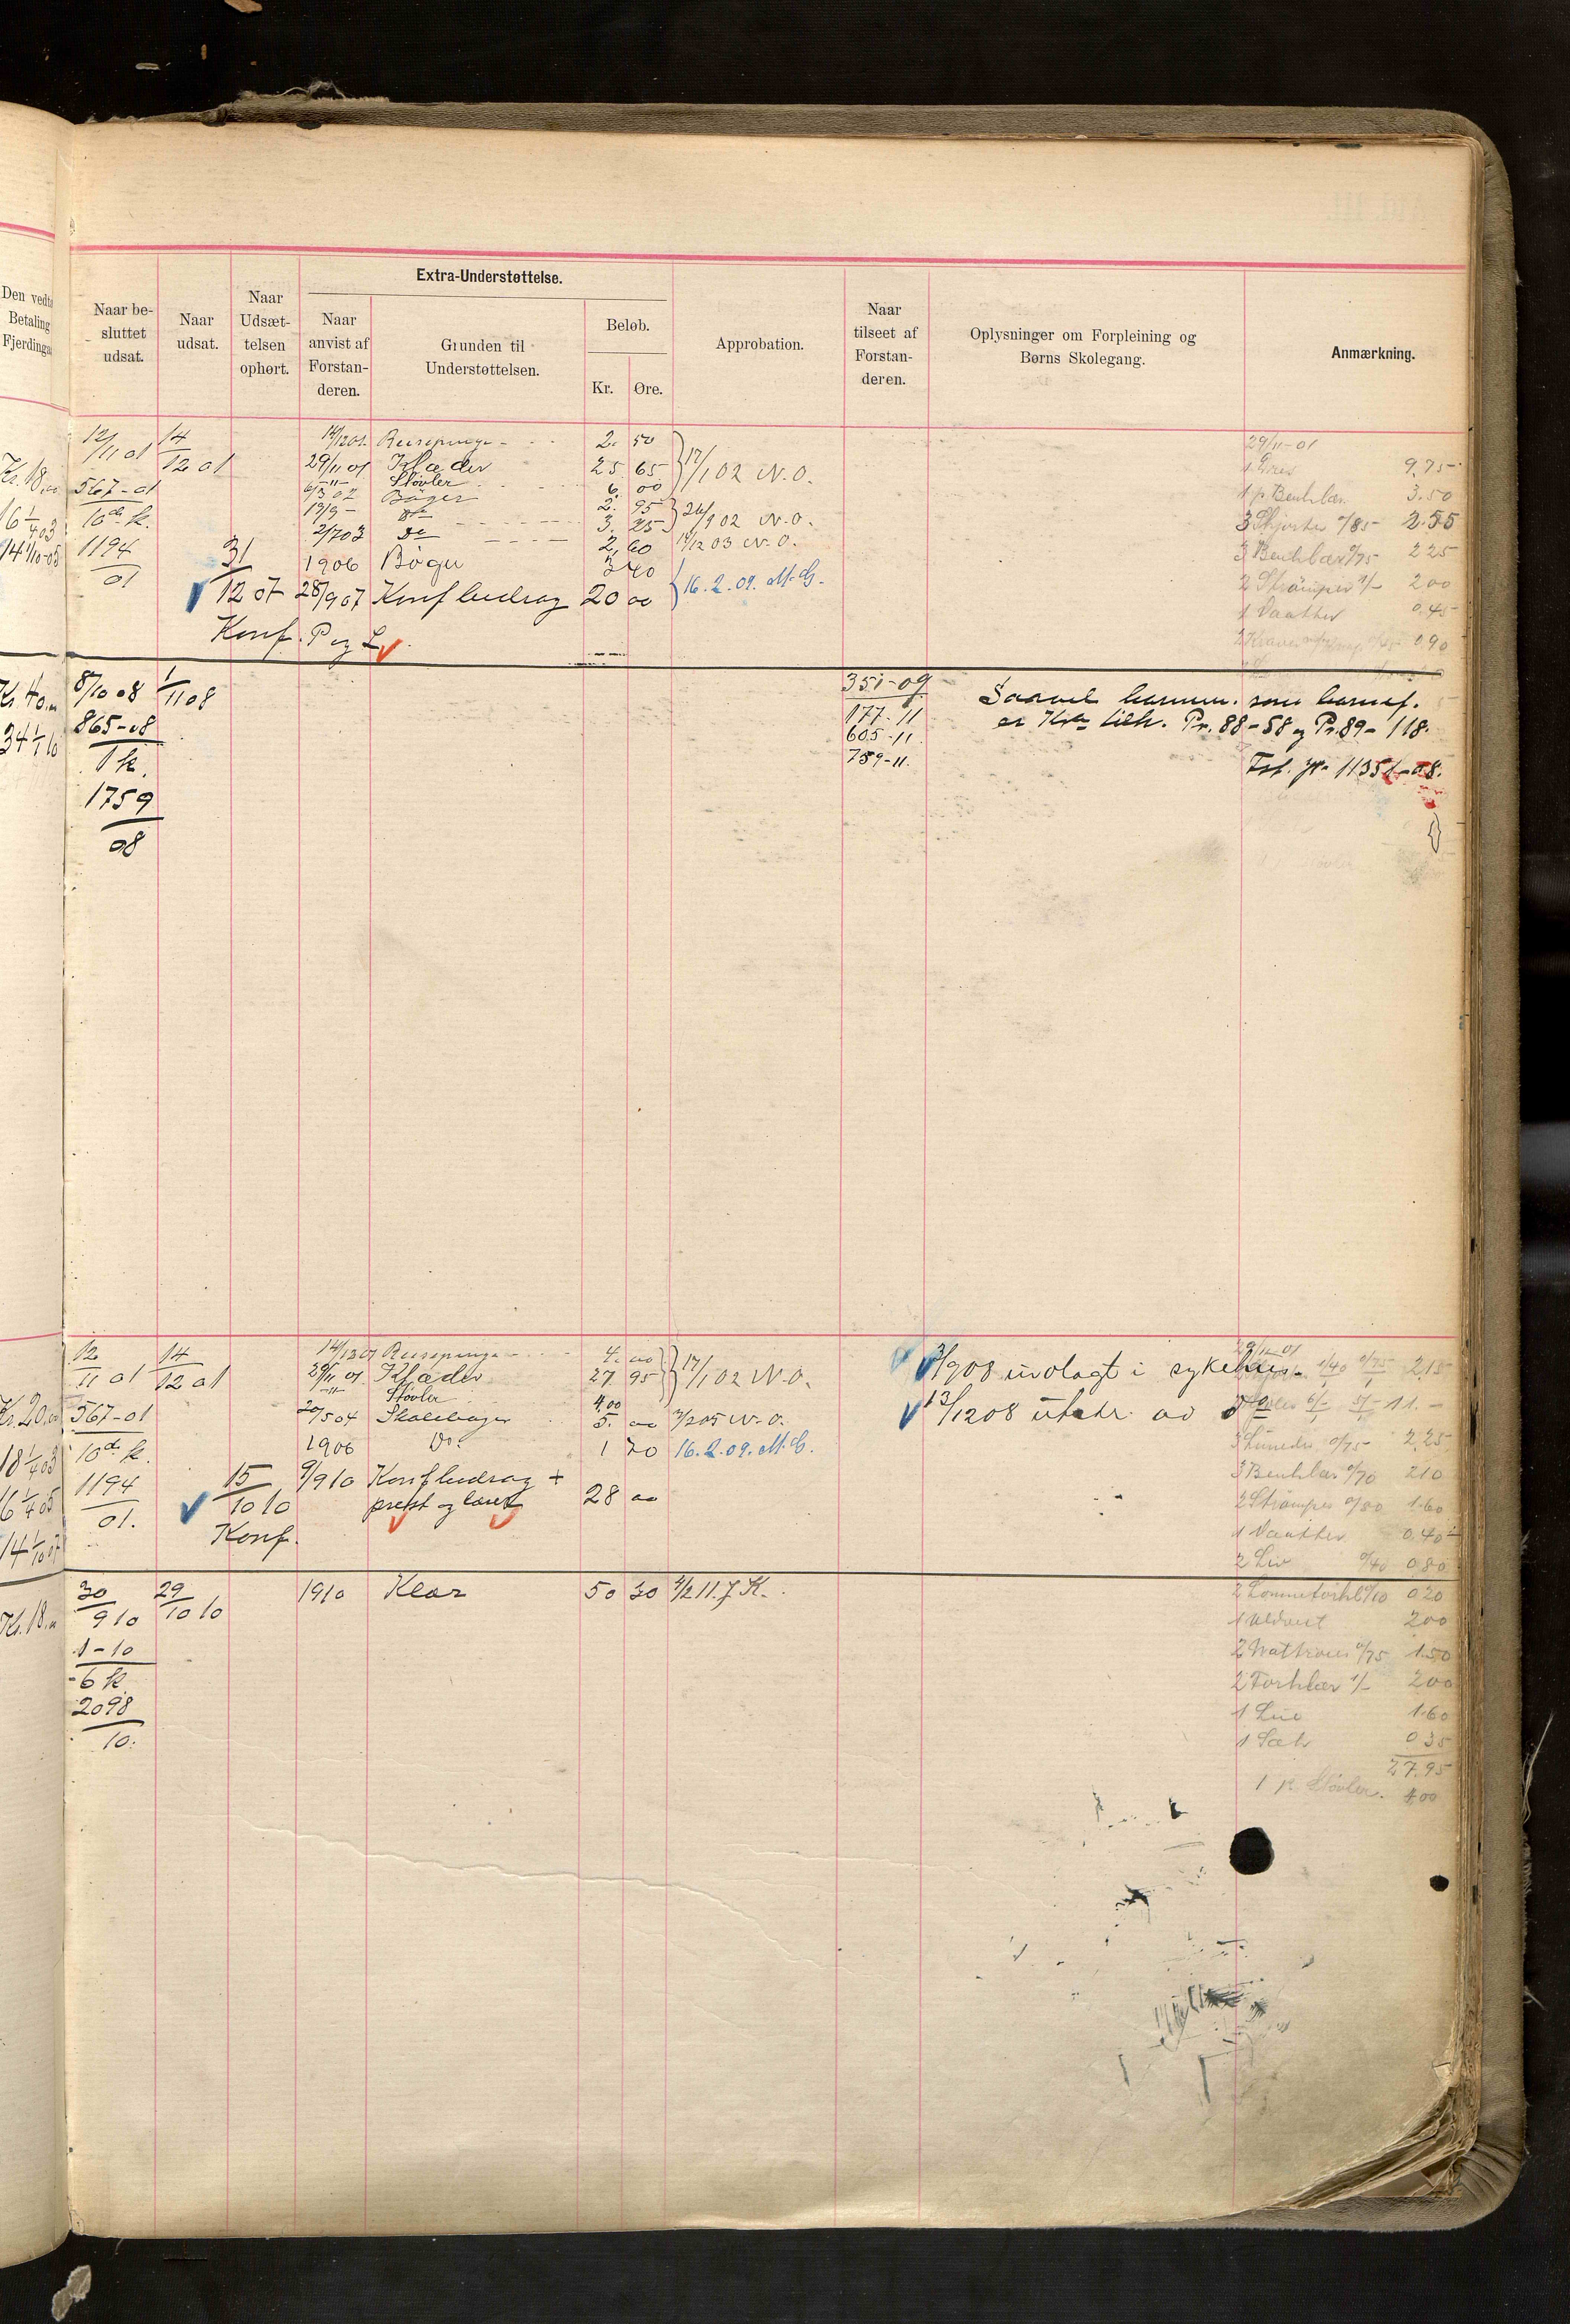 Extra-Understøttelse.
Den vedt
Betaling
Fjerdinga
Naar be-
sluttet
udsat.
Naar
udsat.
Naar
Udsæt-
telsen
ophørt.
Naar
anvist af
Forstan-
deren.
Grunden til
Understøttelsen.
Beløb.
Kr. Øre.
Approbation.
Naar
tilseet af
Forstan-
deren.
Oplysninger om Forpleining og
Børns Skolegang.
Anmærkning.
Kr. 18.00
16 1/4 03
14 1/10-05
12/11 01 14/12 01
567-01
10de k.
1194
01
31
12 07
14/12 01. Reisepenge - 2. 50
29/11 01 Klæder 25 65
-"- Støvler 6. 00
6/3 02 Bøger 2. 95
19/9 - do 3. 25
2/7 03 do 2,60
1906 Bøger 3 40
28/9 07 Konfbidrag 20 00
Konf. P og L
17/1 02 N.O.
24/9 02 N.O.
14/12 03 N.O.
16.2.09. M.G.
29/11-01
9.75
1 p. Benklær 3.50
3 Skjorter 0/85 2.55
3 Benklær 0/75 2 25
2 Strømper 1/- 2 00
0.45
0.90
Kr. 40.00
34 1/1 10
8/10 08 1/11 08
865-08
1 k.
1759
08
351-09
177-11
605-11
759-11.
88-58 og Pr. 89-118.
11351-08.
Kr. 20.00
18 1/4 03
16 1/4 05
14 1/10 07
12/11 01 14/12 01
567-01
10de k.
1194
01.
15
10 10
Konf.
14/12 01 Reisepenge - 4. 00
29/11 01 Klæder 27 95
-"- Støvler 4 00
20/5 04 Skolebøger 5. 00
1906 Do. 1 70
9/9 10 Konfbidrag +
prest og lærer 28 00
17/1 02 N.O.
2/2 05 N.O.
16.2.09. M.G.
9 08 indlagt i sykehus.
13/12 08 utskr. av do
29/11-01
1/40 0/75 2,15
6/- 5/- 11.-
0/75 2,25
3 Benklær 0/70 2 10
2 Strømper 0/80 1.60
0.40
2 Liv 0/40 0.80
2 Lommetørkl. 0/10 0 20
1 Uldvest 2 00
0/75 1.50
2 Forklær 1/- 2 00
1 Lue 1.60
1 Sæk 0 35
27.95
1 p. Støvler. 4 00
Kr. 18.00
30/9 10 29/10 10
1-10
6 k
2098
10.
1910 Klær 50 30 4/2 11. J.K.